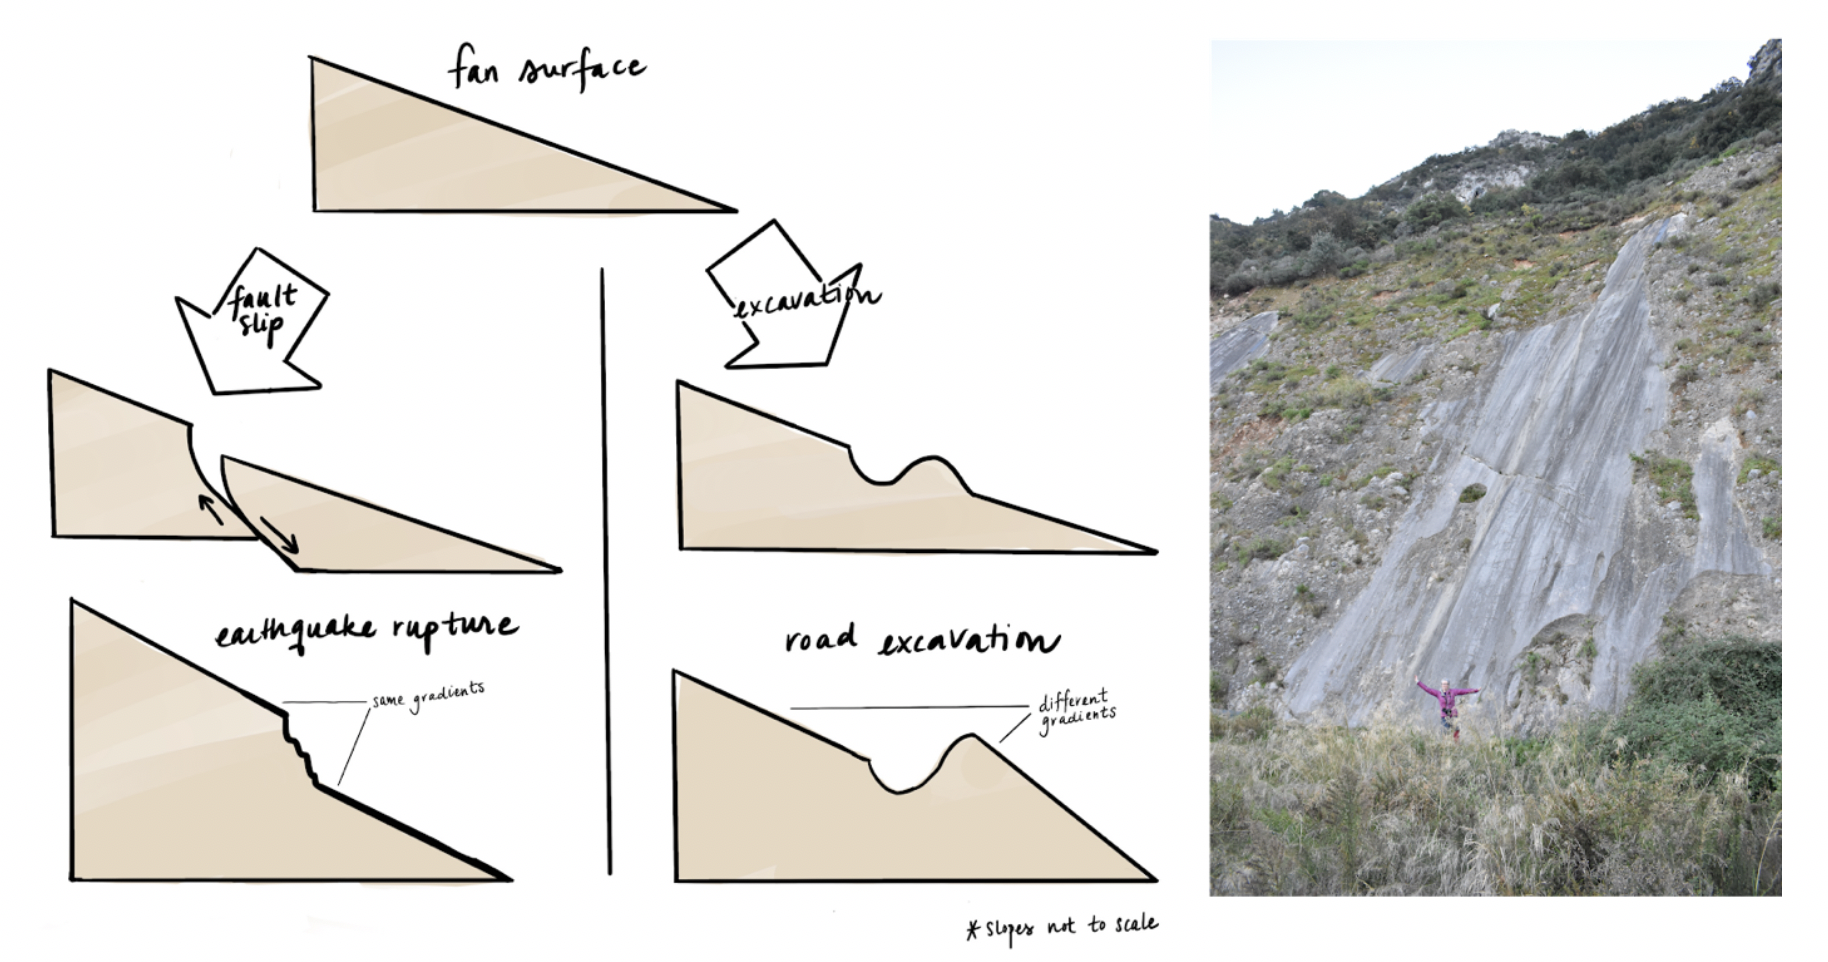 fan surface
fault
slip
excavation
earthquake rupture
same gradients
road excavation
different
gradients
* slopes not to scale